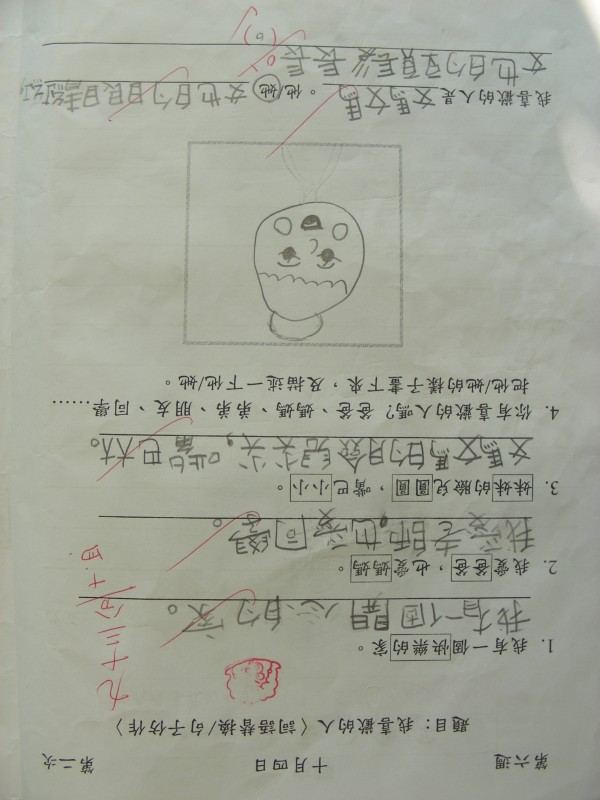 第六週 十月四日 第二次
題目：我喜歡的人〈詞語替換/句子仿作〉
九十三分
十.四
1. 我有一個快樂的家。
我有一個開心的家。
2. 我愛爸爸，也愛媽媽。
我愛老師，也愛同學。
3. 妹妹的臉兒圓圓，嘴巴小小。
媽媽的臉兒尖尖，嘴巴大大。
4. 你有喜歡的人嗎？爸爸、媽媽、弟弟、朋友、同學……
把他/她的樣子畫下來，及描述一下他/她。
我喜歡的人是媽媽。他/她她的眼睛
她的頭髮長長